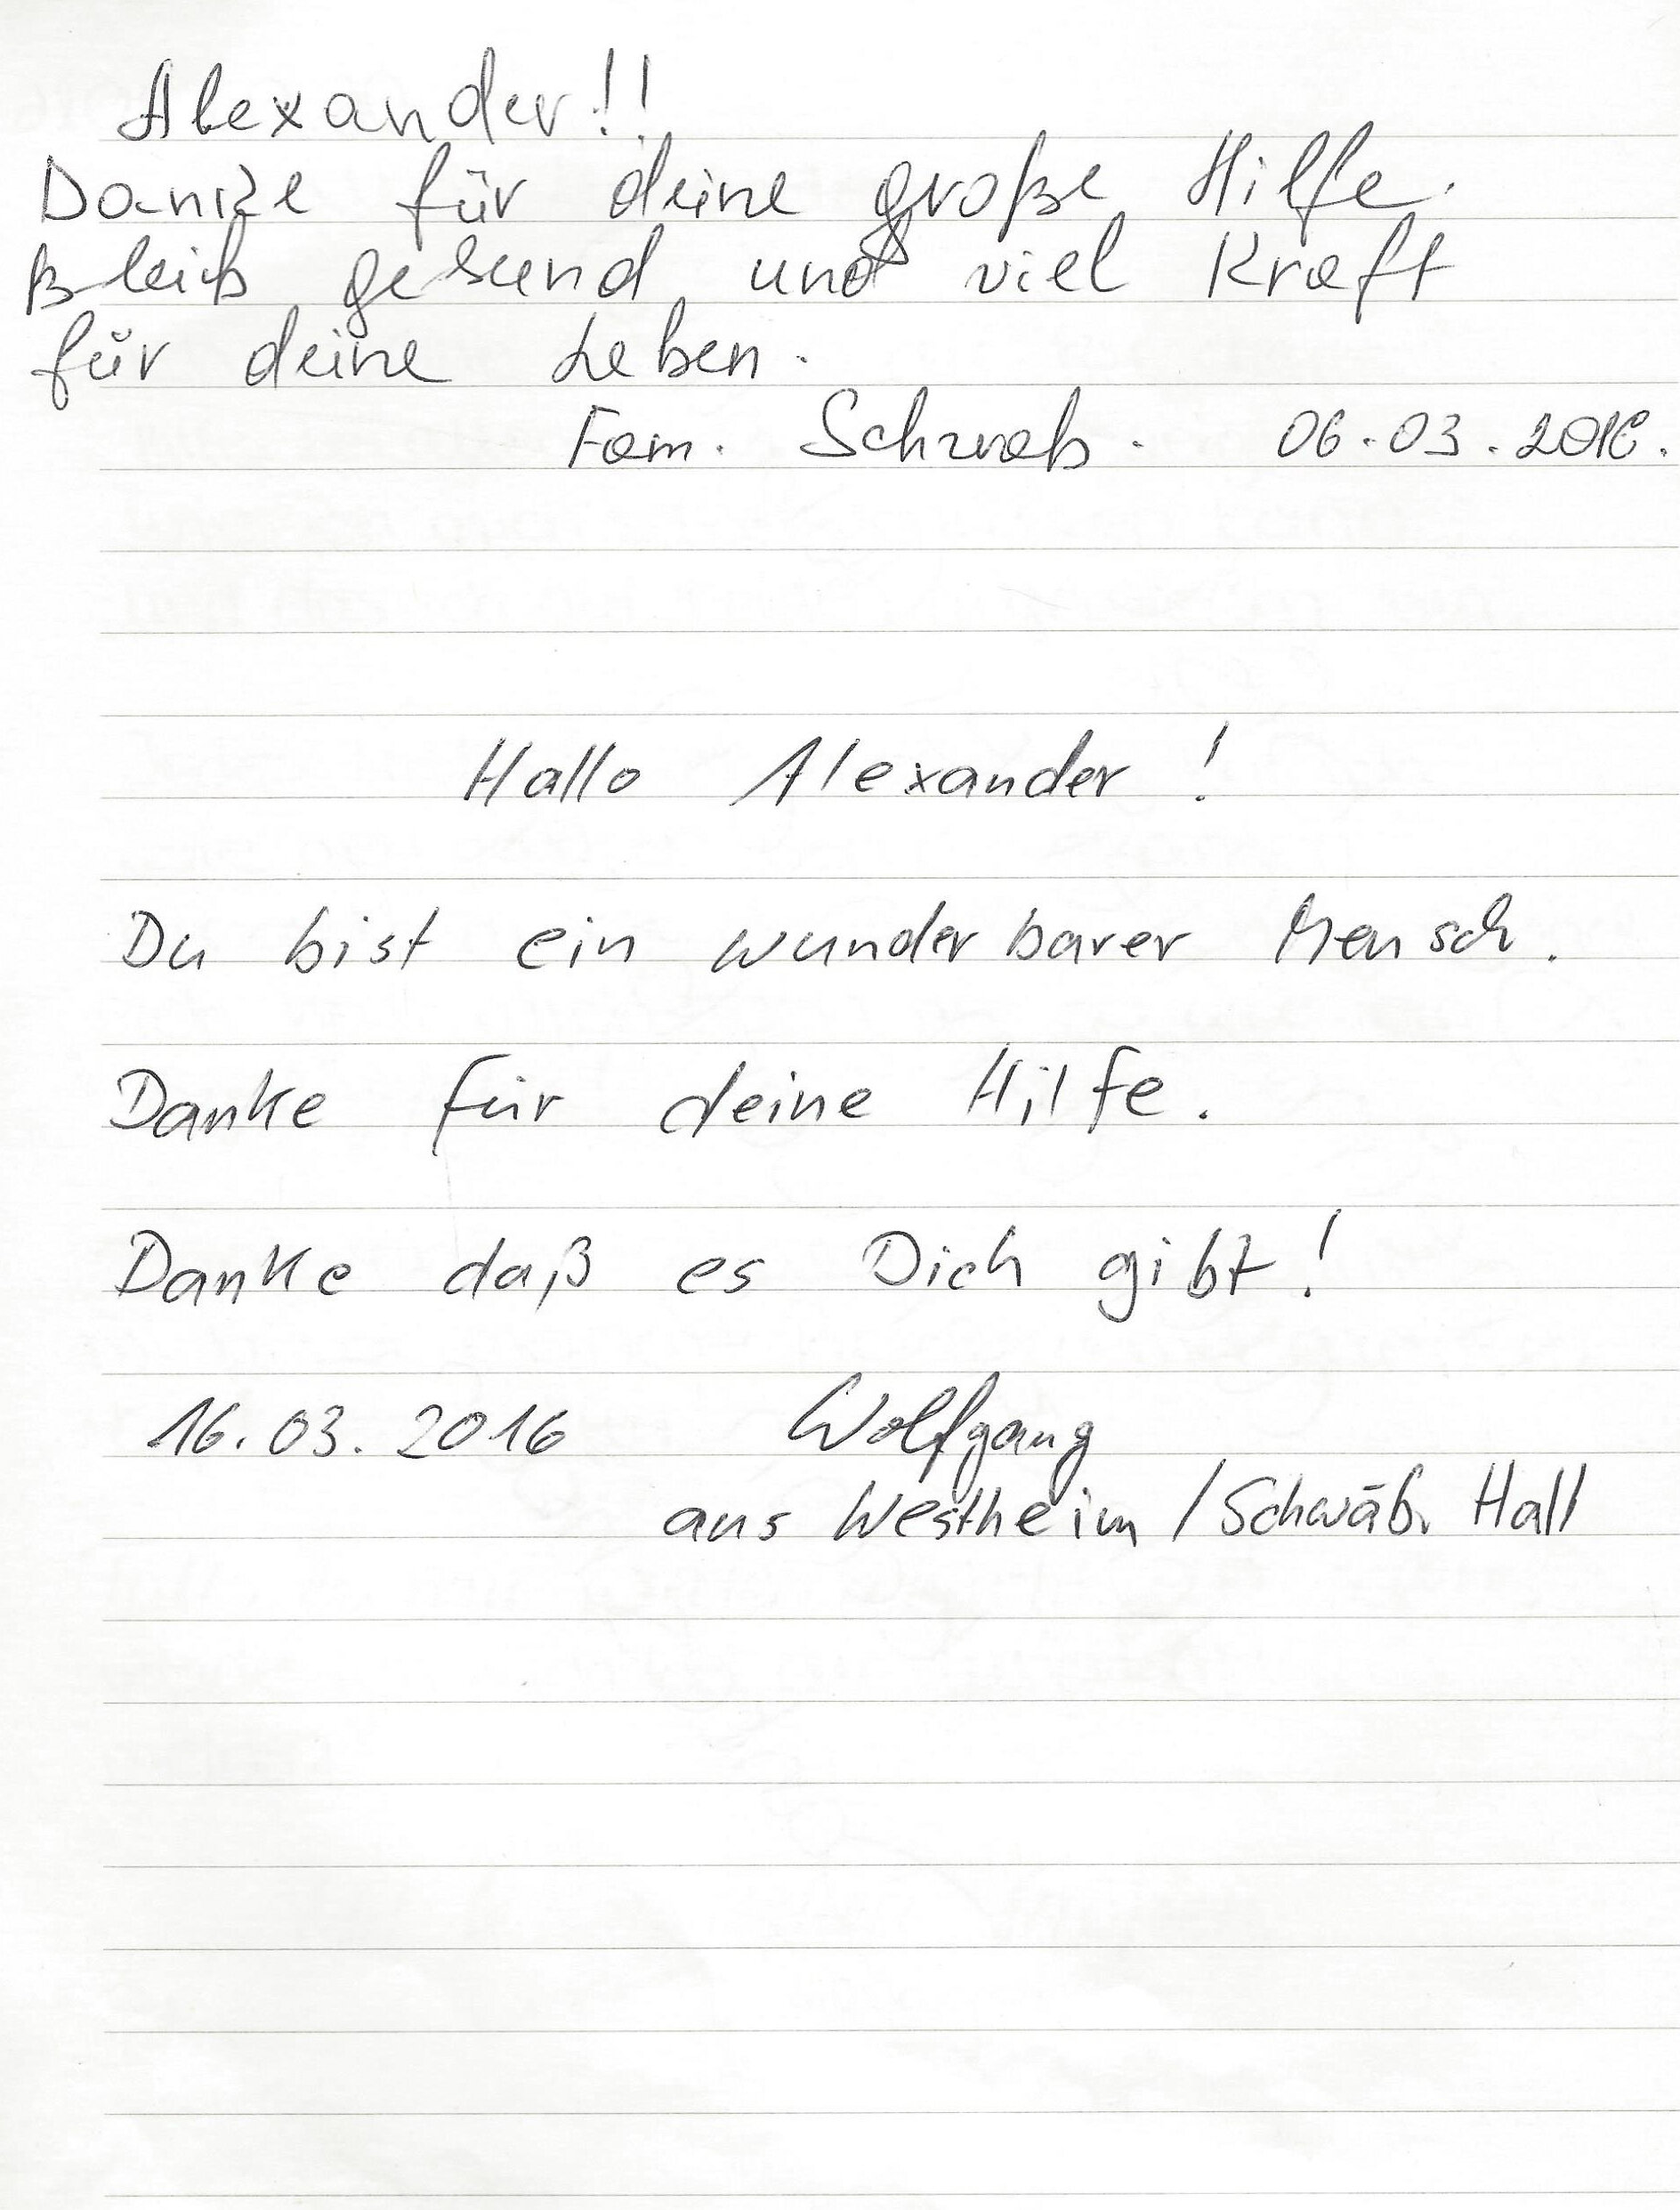 Alexander!!
Danke für deine große Hilfe.
Bleib gesund und viel Kraft
für deine Leben.
Fam. Schwab. 06.03.2016.
Hallo Alexander!
Du bist ein wunderbarer Mensch.
Danke für deine Hilfe.
Danke daß es Dich gibt!
16.03.2016 Wolfgang
aus Westheim / Schwäb. Hall